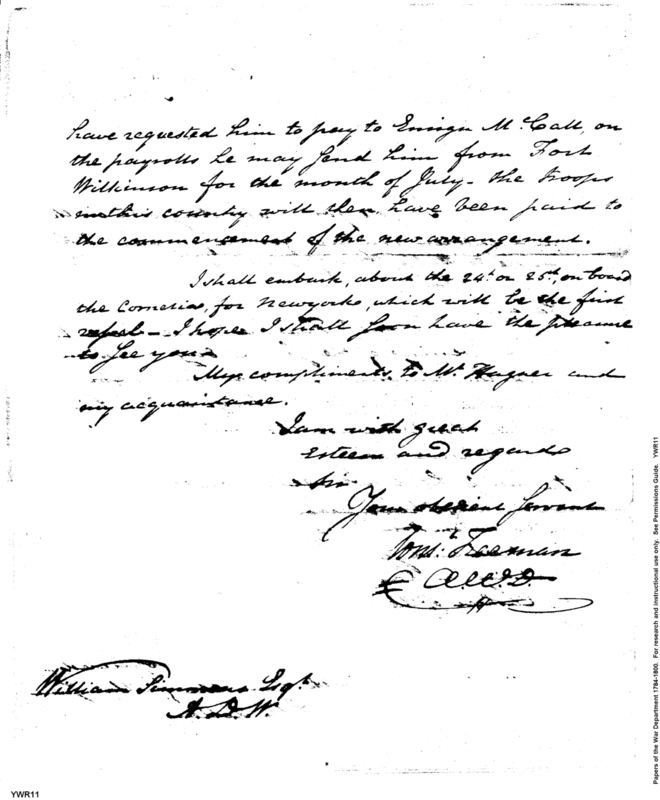 have requested him to pay to Ensign McCall, on
the payrolls he may send him from Fort
Wilkinson for the month of July - the troops
in this country will then have been paid to
the commencement of the new arrangement.
I shall embark, about the 24th or 25th, on board
the Cornelia, for Newyork, which will be the first
vessel - I hope I shall soon have the pleasure
to see you
My compliments to Mr. Hagner and
my acquaintance.
I am with great
esteem and regards
Sir
Your obedient Servant
Cons: Freeman
A.W.D.
William Simmons Esqr.
A.D.W.
YWR11
Papers of the War Department 1784-1800. For research and instructional use only. See Permissions Guide. YWR11